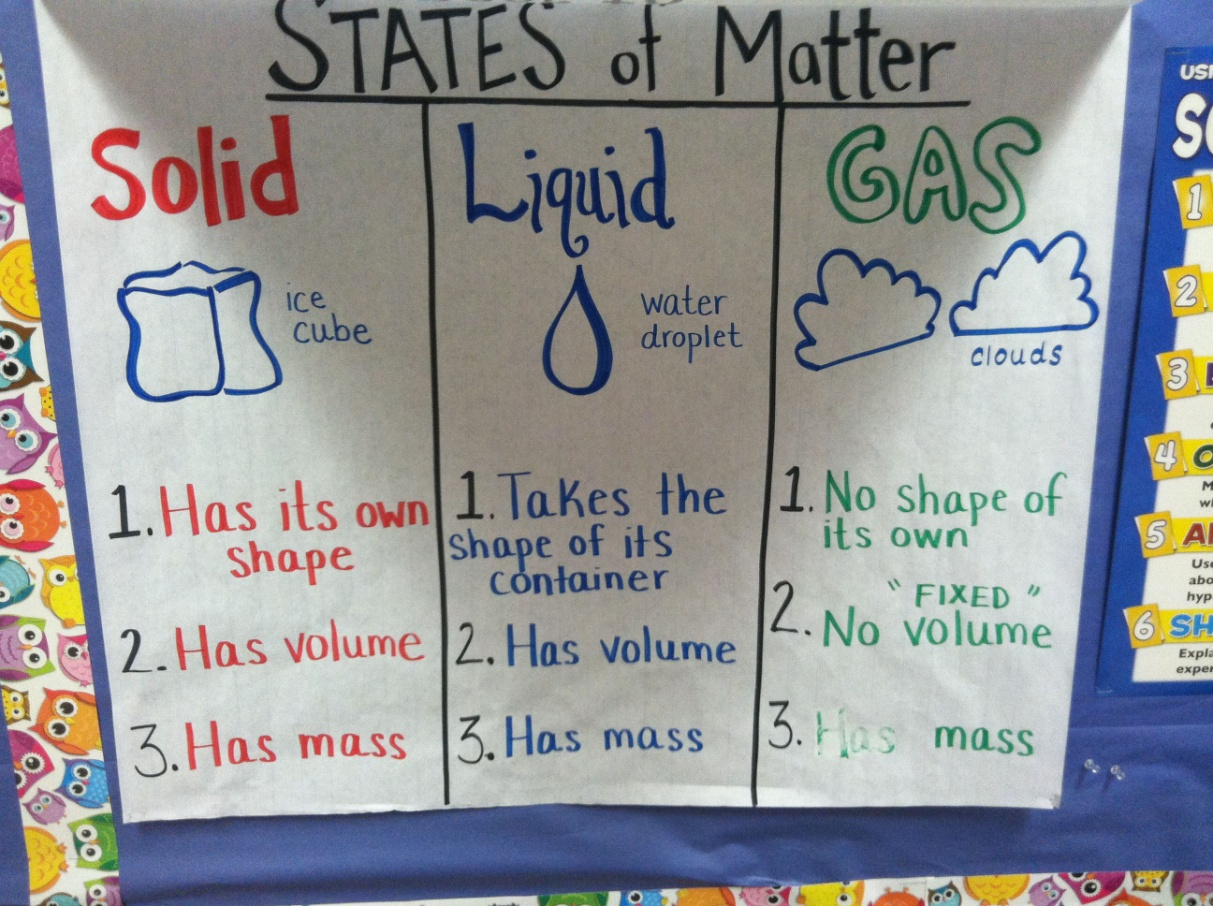 STATES of Matter
Solid
ice
cube
1. Has its own
shape
2. Has volume
3. Has mass
Liquid
water
droplet
1. Takes the
shape of its
container
2. Has volume
3. Has mass
GAS
clouds
1. No shape of
its own
" FIXED "
2. No volume
3. Has mass
1
2
3
4
5
6 SH